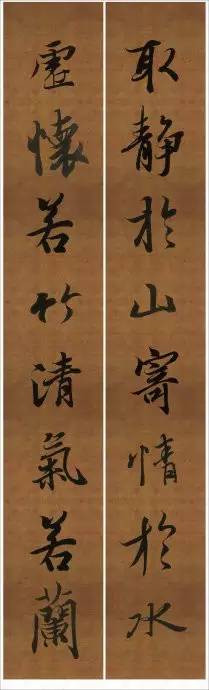 取静於山寄情於水
虚懷若竹清氣若蘭